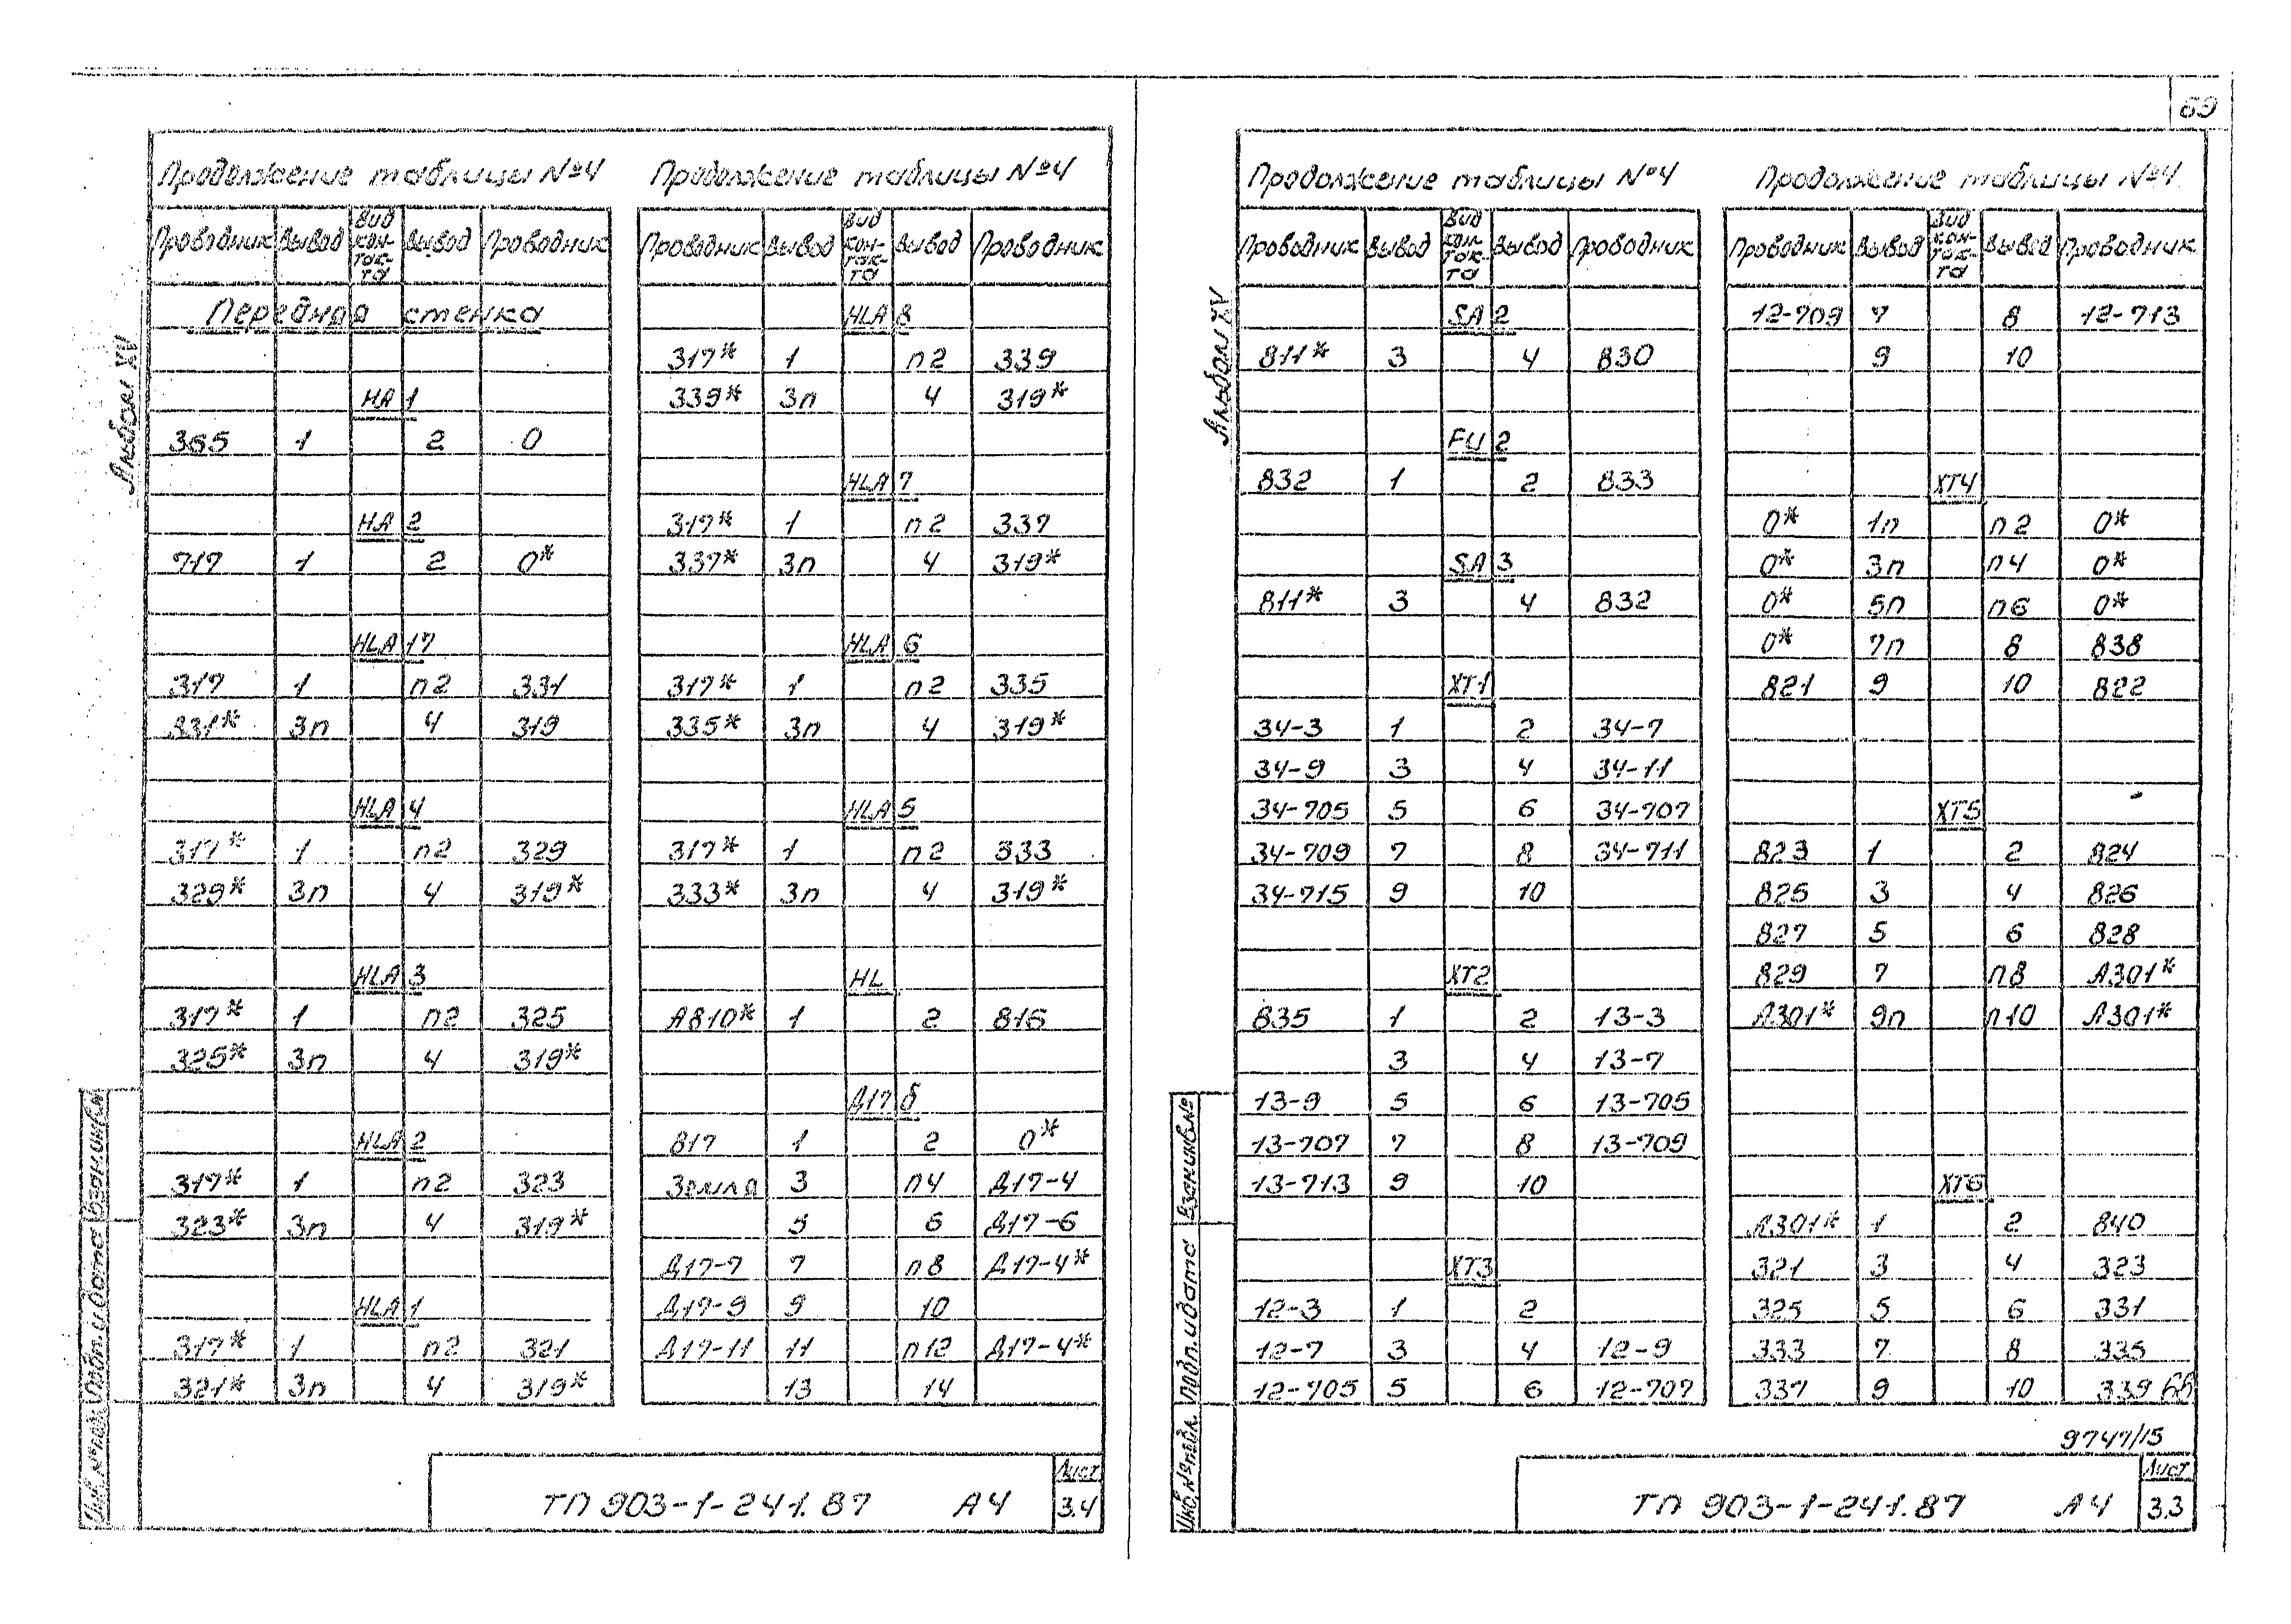 69
Альбом XV
Продолжение таблицы №4
Проводник Вывод Вид кон-так-та Вывод Проводник
Передняя стенка
НА 1
365 1 2 0
НА 2
717 1 2 0*
HLA 17
317 1 п2 331
331* 3п 4 319
HLA 4
317* 1 п2 329
329* 3п 4 319*
HLA 3
317* 1 п2 325
325* 3п 4 319*
HLA 2
317* 1 п2 323
323* 3п 4 319*
HLA 1
317* 1 п2 321
321* 3п 4 319*
Продолжение таблицы №4
Проводник Вывод Вид кон-так-та Вывод Проводник
HLA 8
317* 1 п2 339
339* 3п 4 319*
HLA 7
317* 1 п2 337
337* 3п 4 319*
HLA 6
317* 1 п2 335
335* 3п 4 319*
HLA 5
317* 1 п2 333
333* 3п 4 319*
HL
А810* 1 2 816
Д17 б
817 1 2 0*
Земля 3 п4 Д17-4
5 6 Д17-6
Д17-7 7 п8 Д17-4*
Д17-9 9 10
Д17-11 11 п12 Д17-4*
13 14
Инв. № подл. Подп. и дата Взам. инв. №
ТП 903-1-241.87 А4
Лист
3.4
Альбом XV
Продолжение таблицы №4
Проводник Вывод Вид кон-так-та Вывод Проводник
SA 2
811* 3 4 830
FU 2
832 1 2 833
SA 3
811* 3 4 832
XT1
34-3 1 2 34-7
34-9 3 4 34-11
34-705 5 6 34-707
34-709 7 8 34-711
34-715 9 10
XT2
835 1 2 13-3
3 4 13-7
13-9 5 6 13-705
13-707 7 8 13-709
13-713 9 10
XT3
12-3 1 2
12-7 3 4 12-9
12-705 5 6 12-707
Продолжение таблицы №4
Проводник Вывод Вид кон-так-та Вывод Проводник
12-709 7 8 12-713
9 10
XT4
0* 1п п2 0*
0* 3п п4 0*
0* 5п п6 0*
0* 7п 8 838
821 9 10 822
XT5
823 1 2 824
825 3 4 826
827 5 6 828
829 7 п8 А301*
А301* 9п п10 А301*
XT6
А301* 1 2 840
321 3 4 323
325 5 6 331
333 7 8 335
337 9 10 339
68
9747/15
Инв. № подл. Подп. и дата Взам. инв. №
ТП 903-1-241.87 А4
Лист
3.3